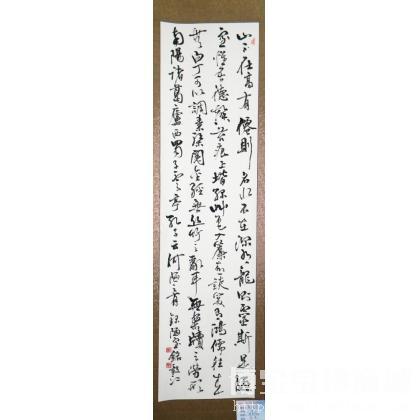 山不在高有僊則名水不在深有龍則靈斯是陋
室惟吾德馨苔痕上堦綠艸色入簾青談笑有鴻儒往來
無白丁可以調素琴閱金經無絲竹之亂耳無案牘之勞形
南陽諸葛廬西蜀子雲亭孔子云何陋之有 錄陋室銘